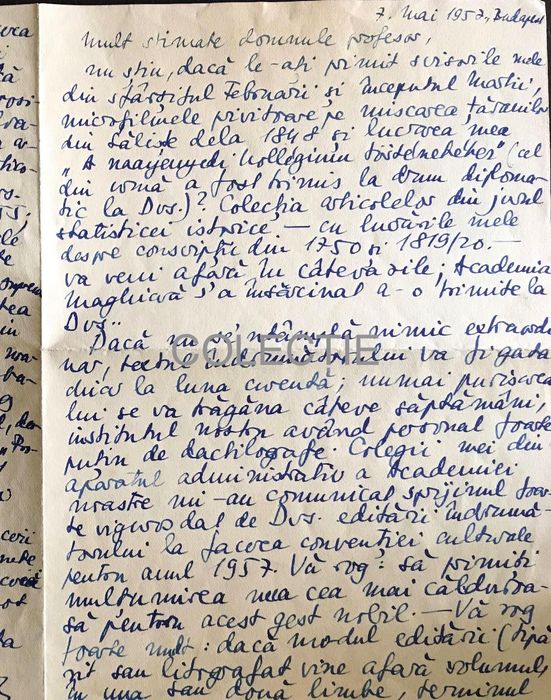 7. Mai 1957, Budapest
Mult stimate domnule profesor,
nu știu, dacă le-ați primit scrisorile mele
din sfârșitul Februarii și începutul Martii,
microfilmele privitoare pe miscarea țăranilor
din Săliște dela 1848 și lucrarea mea
„A nagyenyedi kollégium történetéhez" (cel
din urmă a fost trimis la drum diploma-
tic la Dvs.)? Colecția articolelor din jurul
statisticei istorice, — cu lucrările mele
despre conscripții din 1750 și 1819/20. —
va veni afară în câteva zile; Academia
Maghiară s'a însărcinat a-o trimite la
Dvs..
Dacă nu se 'ntâmplă nimic extraordi
nar, textul îndrumătorului va fi gata
chiar la luna curentă; numai purisarea
lui se va trăgăna câteve săptămâni,
institutul nostru având personal foarte
puțin de dactilografe. Colegii mei din
aparatul administrativ a Academiei
noastre mi-au comunicat sprijinul foar-
te viguros dat de Dvs. editării îndrumă-
torului la facerea convenției culturale
pentru anul 1957. Vă rog: să primiți
mulțumirea mea cea mai călduroa-
să pentru acest gest nobil. — Vă rog
foarte mult: dacă modul editării (tipă
rit sau litografat vine afară volumul,
în una sau două limbe, terminul
COLECTIE